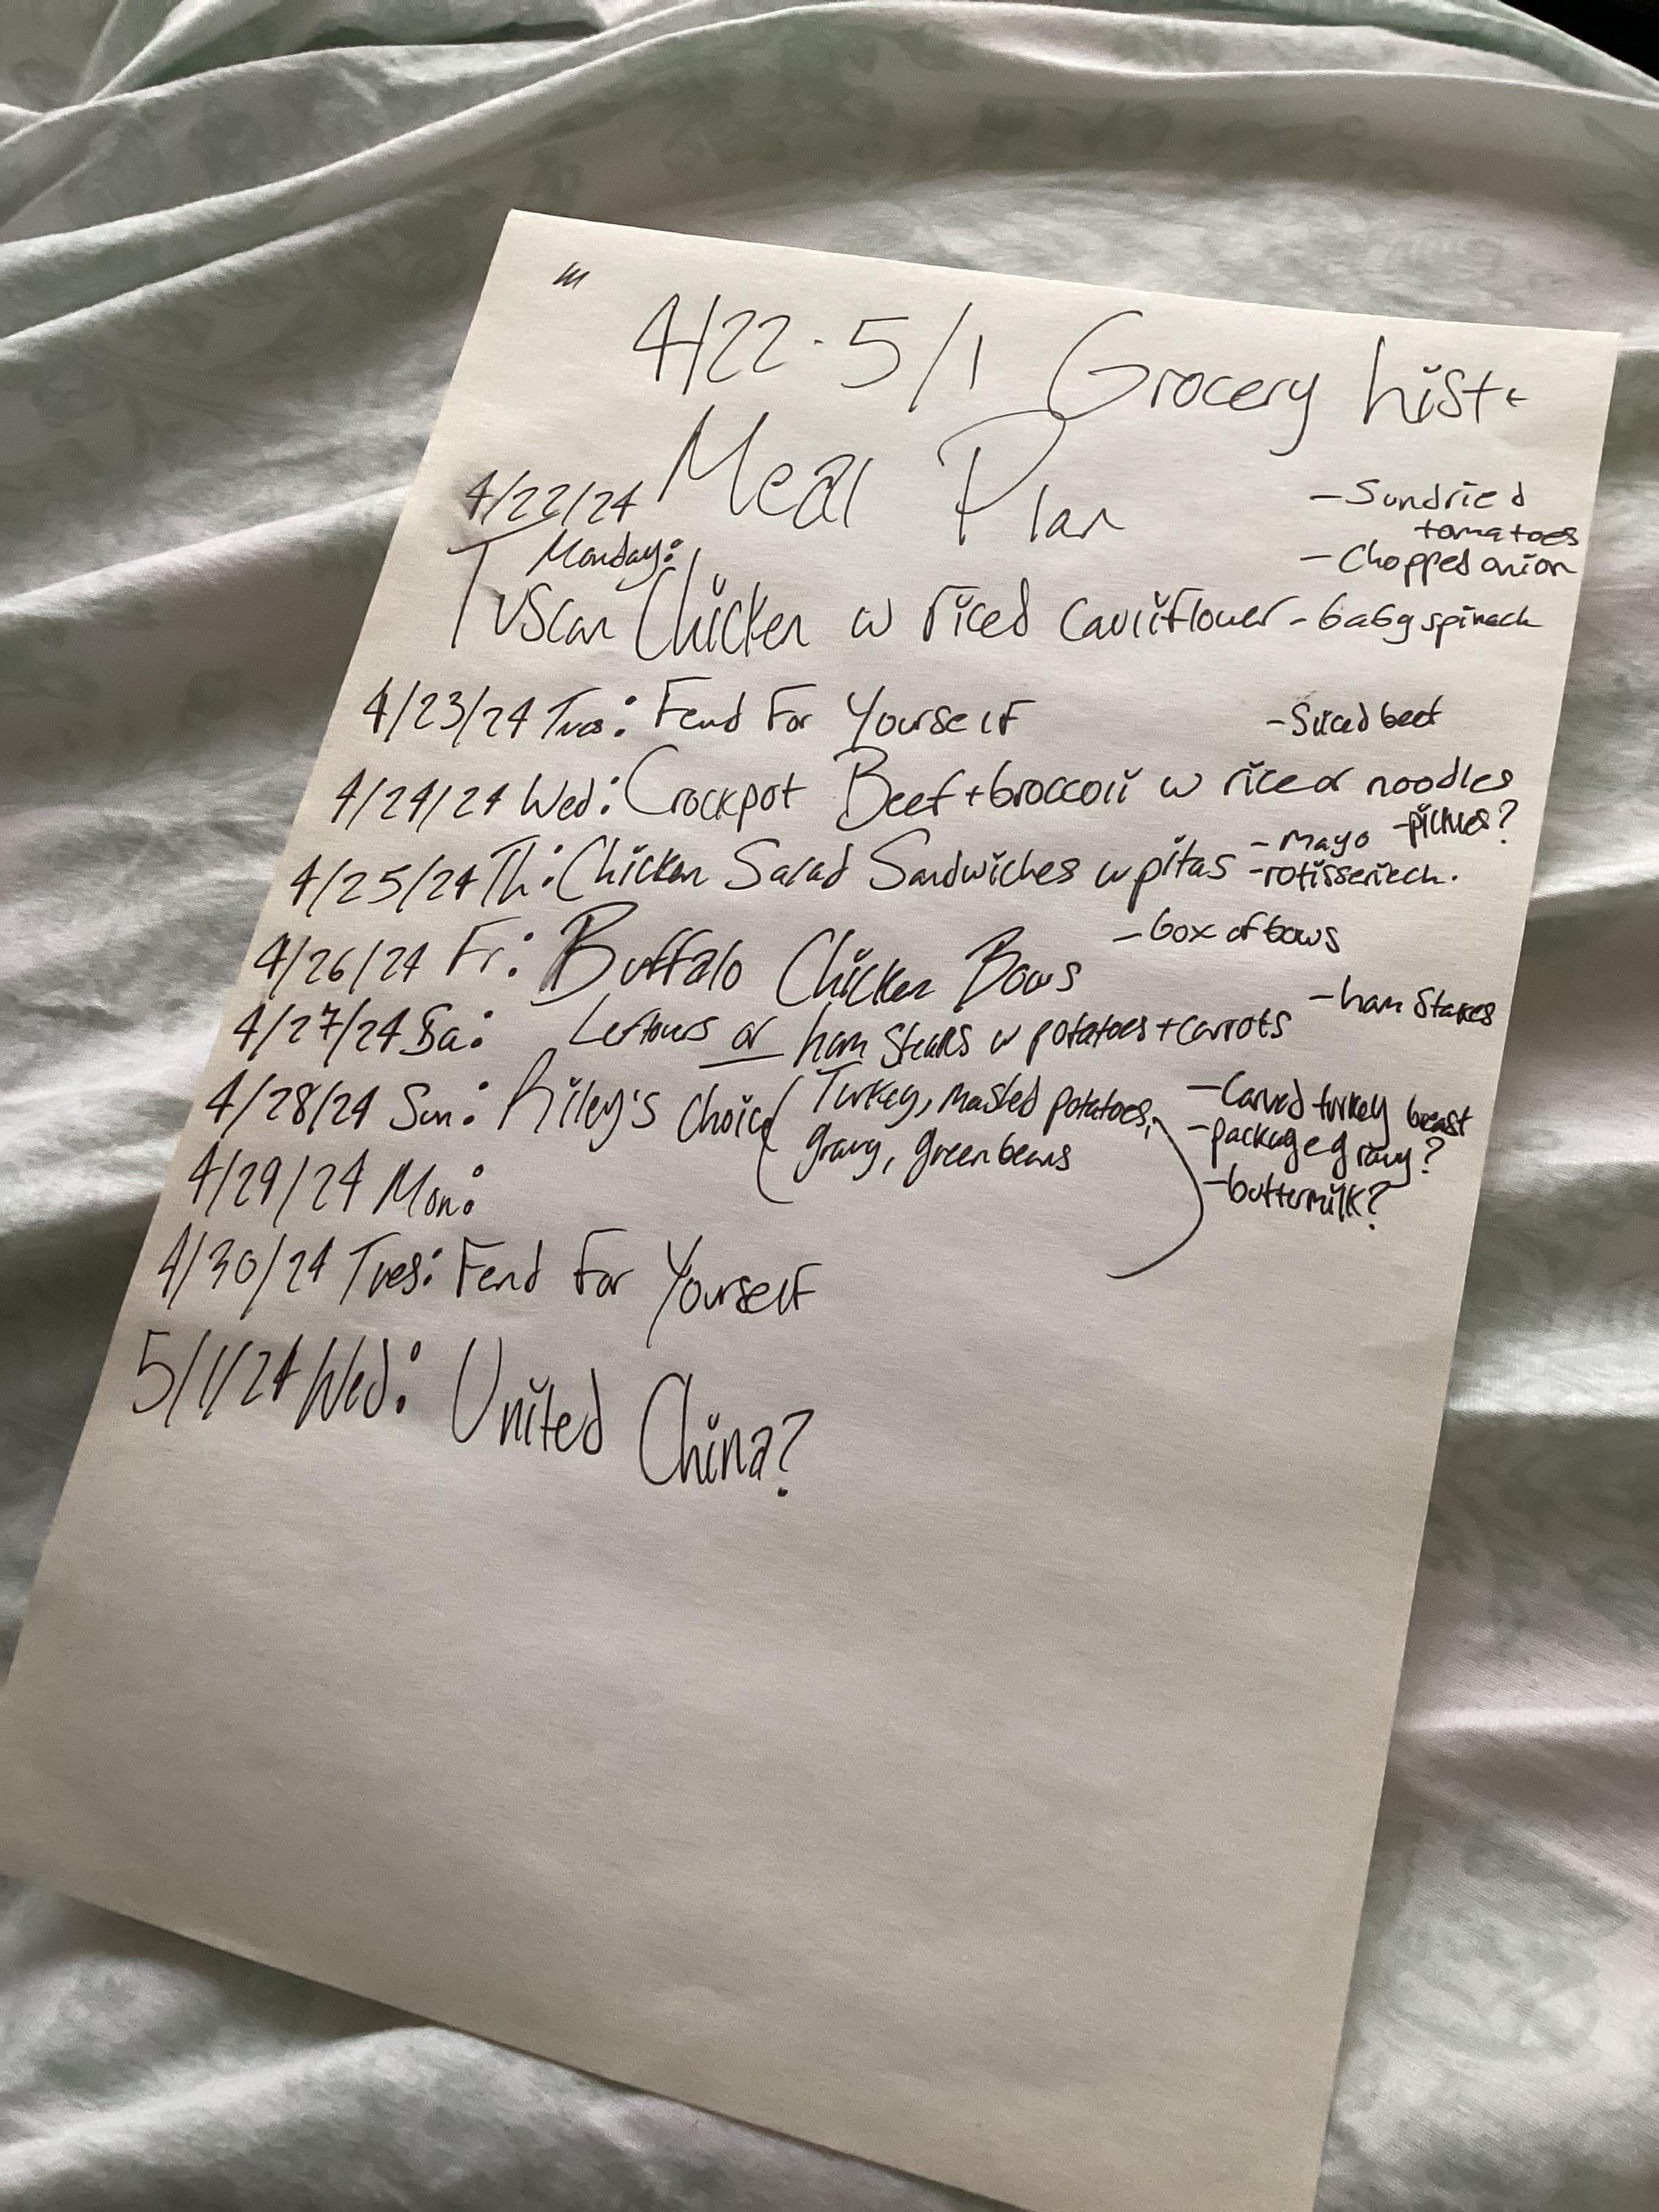 4/22-5/1 Grocery List+
Meal Plan
4/22/24
Monday:
- Sundried
tomatoes
- Chopped onion
Tuscan Chicken w riced cauliflower - baby spinach
4/23/24 Tues: Fend For Yourself
- Sliced beef
4/24/24 Wed: Crockpot Beef + broccoli w rice or noodles
- Mayo - pickles?
4/25/24 Th: Chicken Salad Sandwiches w pitas - rotisserie ch.
4/26/24 Fr: Buffalo Chicken Bows - box of bows
4/27/24 Sa: Leftovers or ham steaks w potatoes + carrots - ham stakes
4/28/24 Sun: Riley's Choice (Turkey, mashed potatoes,
gravy, green beans)
- Carved turkey beast
- package gravy?
- buttermilk?
4/29/24 Mon:
4/30/24 Tues: Fend For Yourself
5/1/24 Wed: United China?